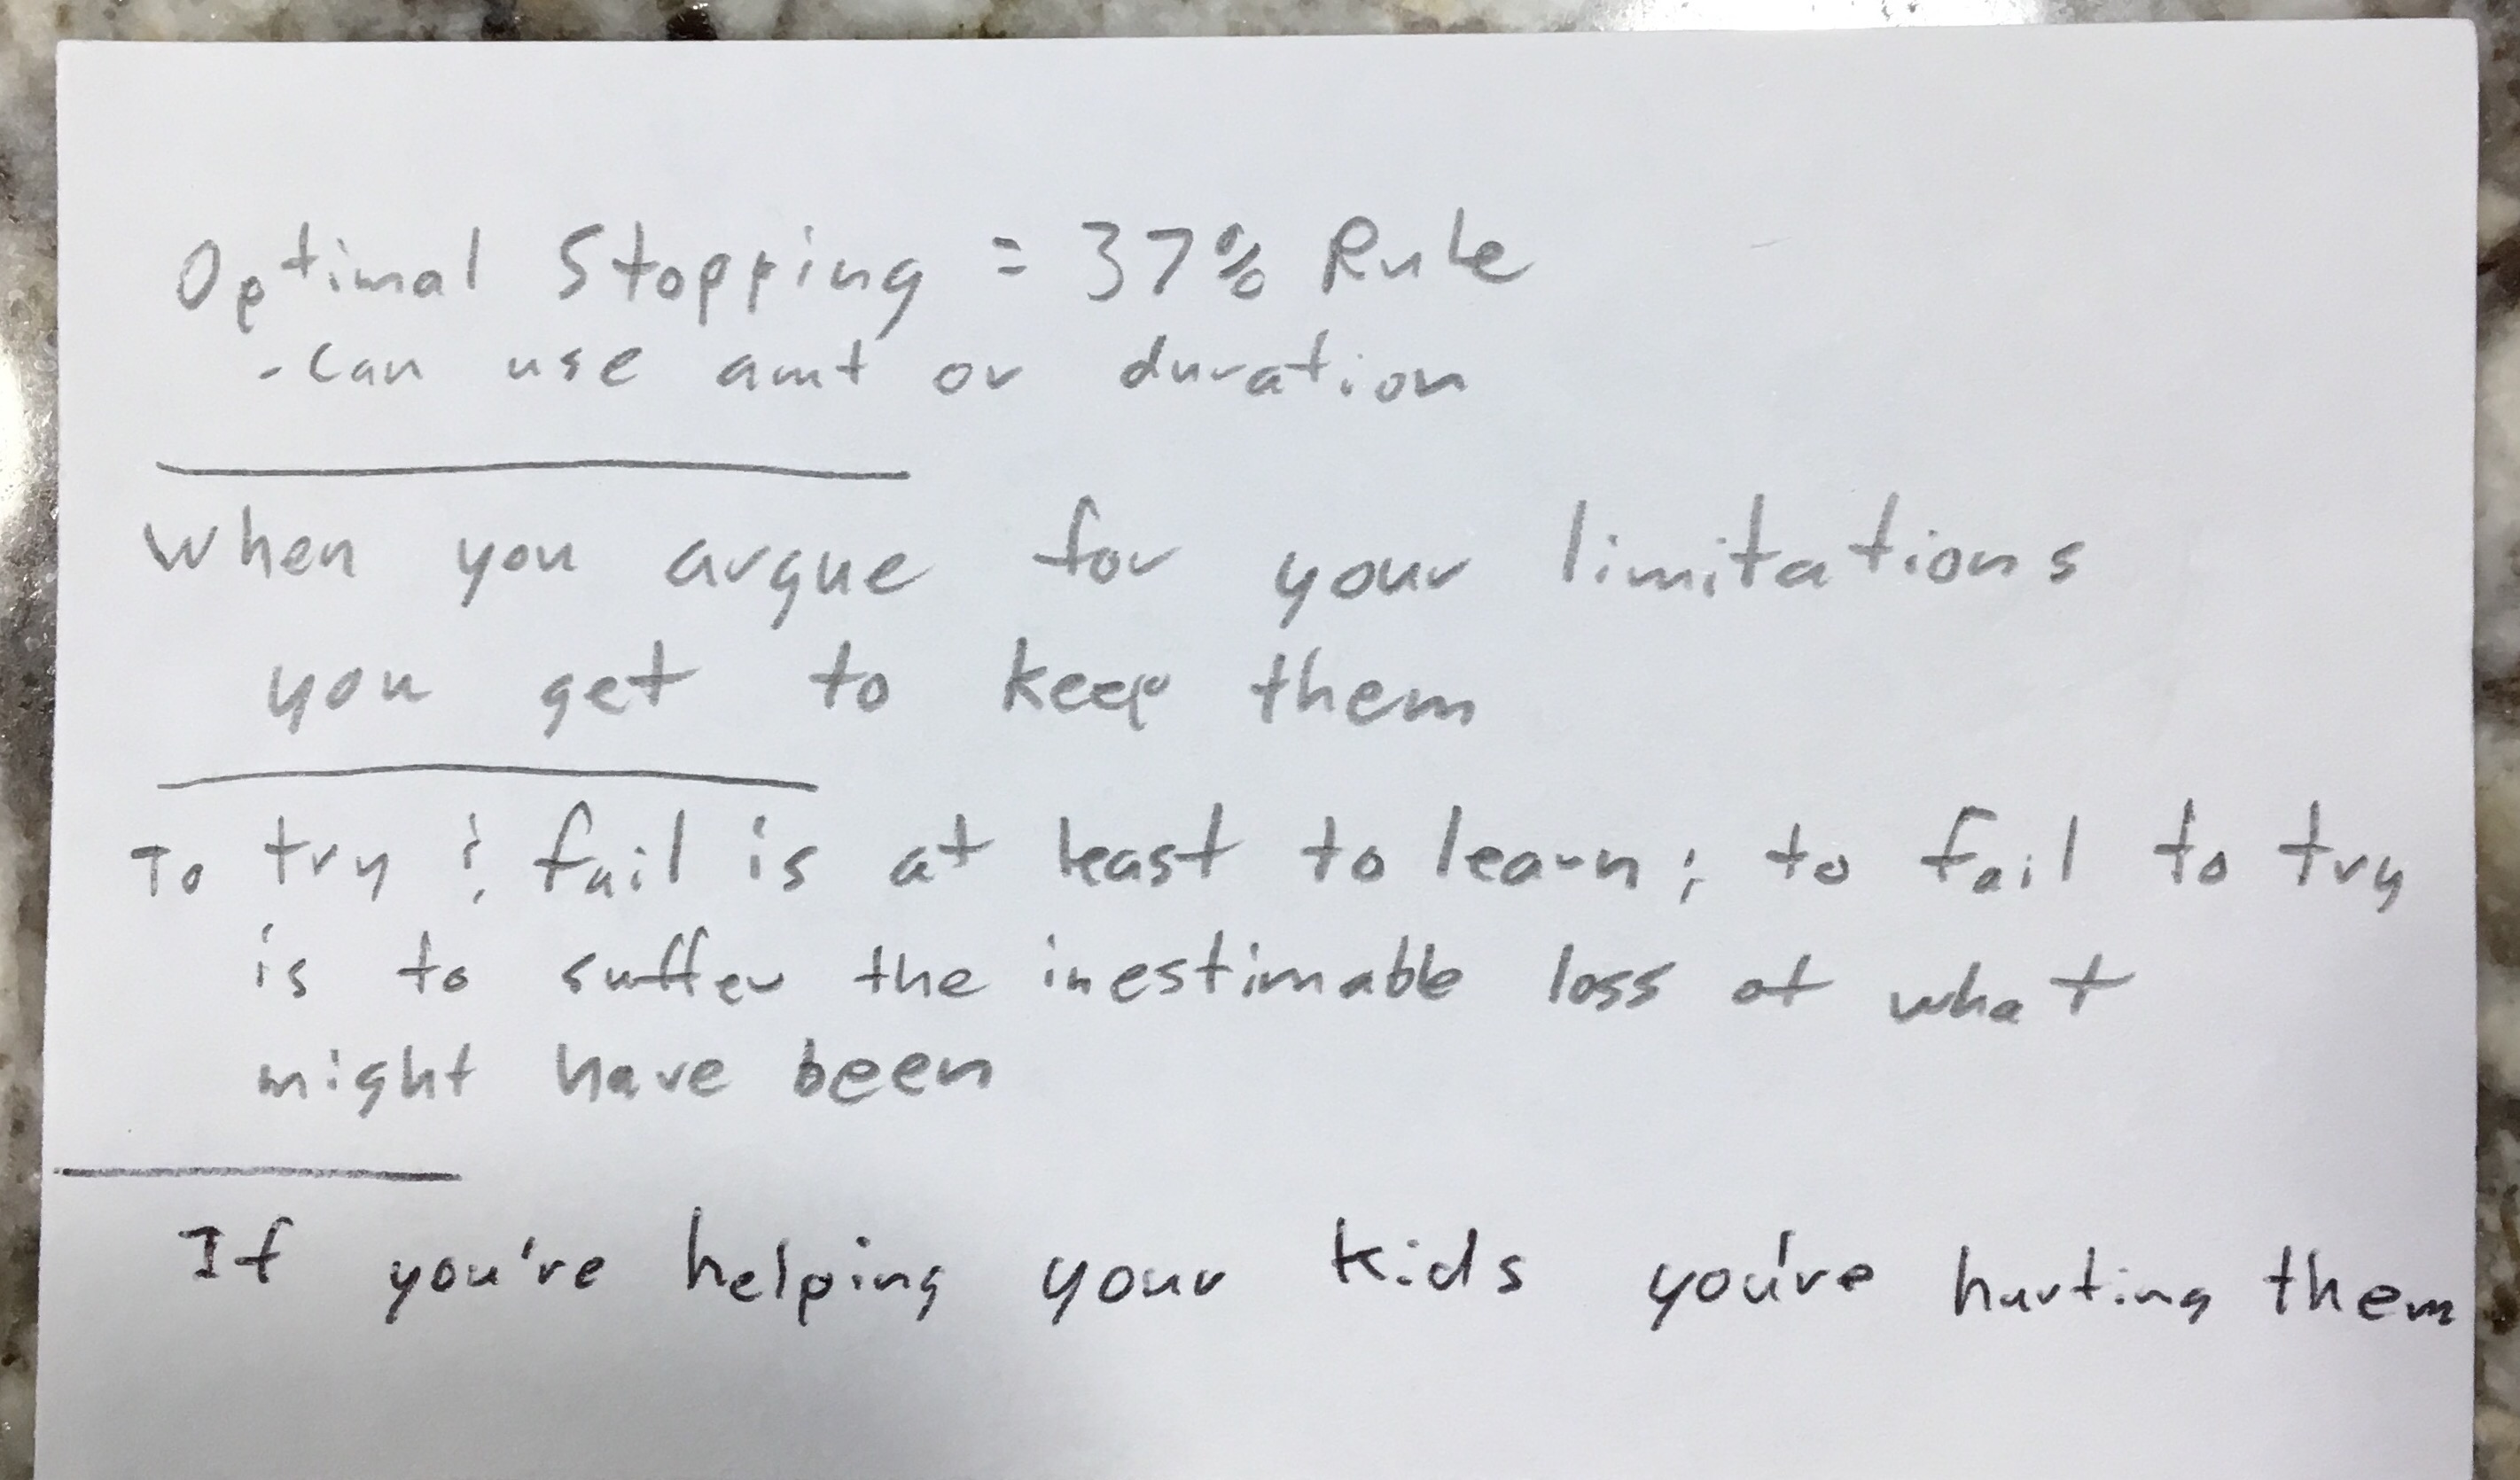 Optimal Stopping = 37% Rule
- Can use amt or duration
When you argue for your limitations
you get to keep them
To try & fail is at least to learn; to fail to try
is to suffer the inestimable loss of what
might have been
If you're helping your kids you're hurting them